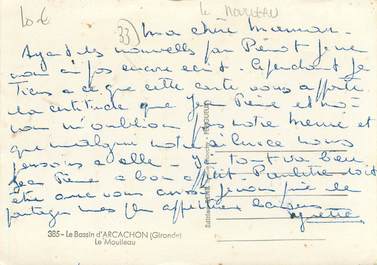 10 €
33
le Moulleau
Ma chère Maman.
Ayant des nouvelles par Pierrot je ne
vous ai pas encore ecrit. Cependant je
tiens a ce que cette carte vous apporte
la certitude que Jean Pierre et moi
nous n'oublions pas notre Mémé et
que malgré notre absence nous
pensons a elle - Ici tout va bien
Jean Pierre a bon appétit
être avec vous aussi je vous prie de
partager mes plus affectueux baisers
Yvette
385 - Le Bassin d'ARCACHON (Gironde)
Le Moulleau